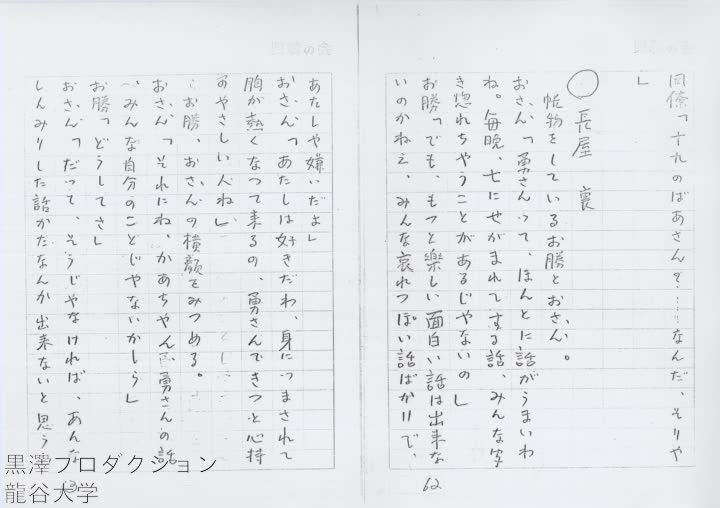 同僚「十九のばあさん？……なんだ、そりや
」
○ 長屋 裏
帷物をしているお勝とおさん。
おさん「勇さんって、ほんとに話がうまいわ
ね。毎晩、七にせがまれてする話、みんな
き惚れちやうことがあるじやないの」
お勝「でも、もつと楽しい面白い話は出来な
いのかねえ、みんな哀れつぽい話ばかりで、
62
あたしや嫌いだよ」
おさん「あたしは好きだわ、身につまされて
胸が熱くなつて来るの、勇さんできつと心持
のやさしい人ね」
お勝、おさんの横顔をみつめる。
おさん「それにね、かあちやん、勇さんの話
、みんな自分のことじやないかしら」
お勝「どうしてさ」
おさん「だって、そうじやなければ、あんな
しんみりした話かたなんか出来ないと思う
黒澤プロダクション
龍谷大学